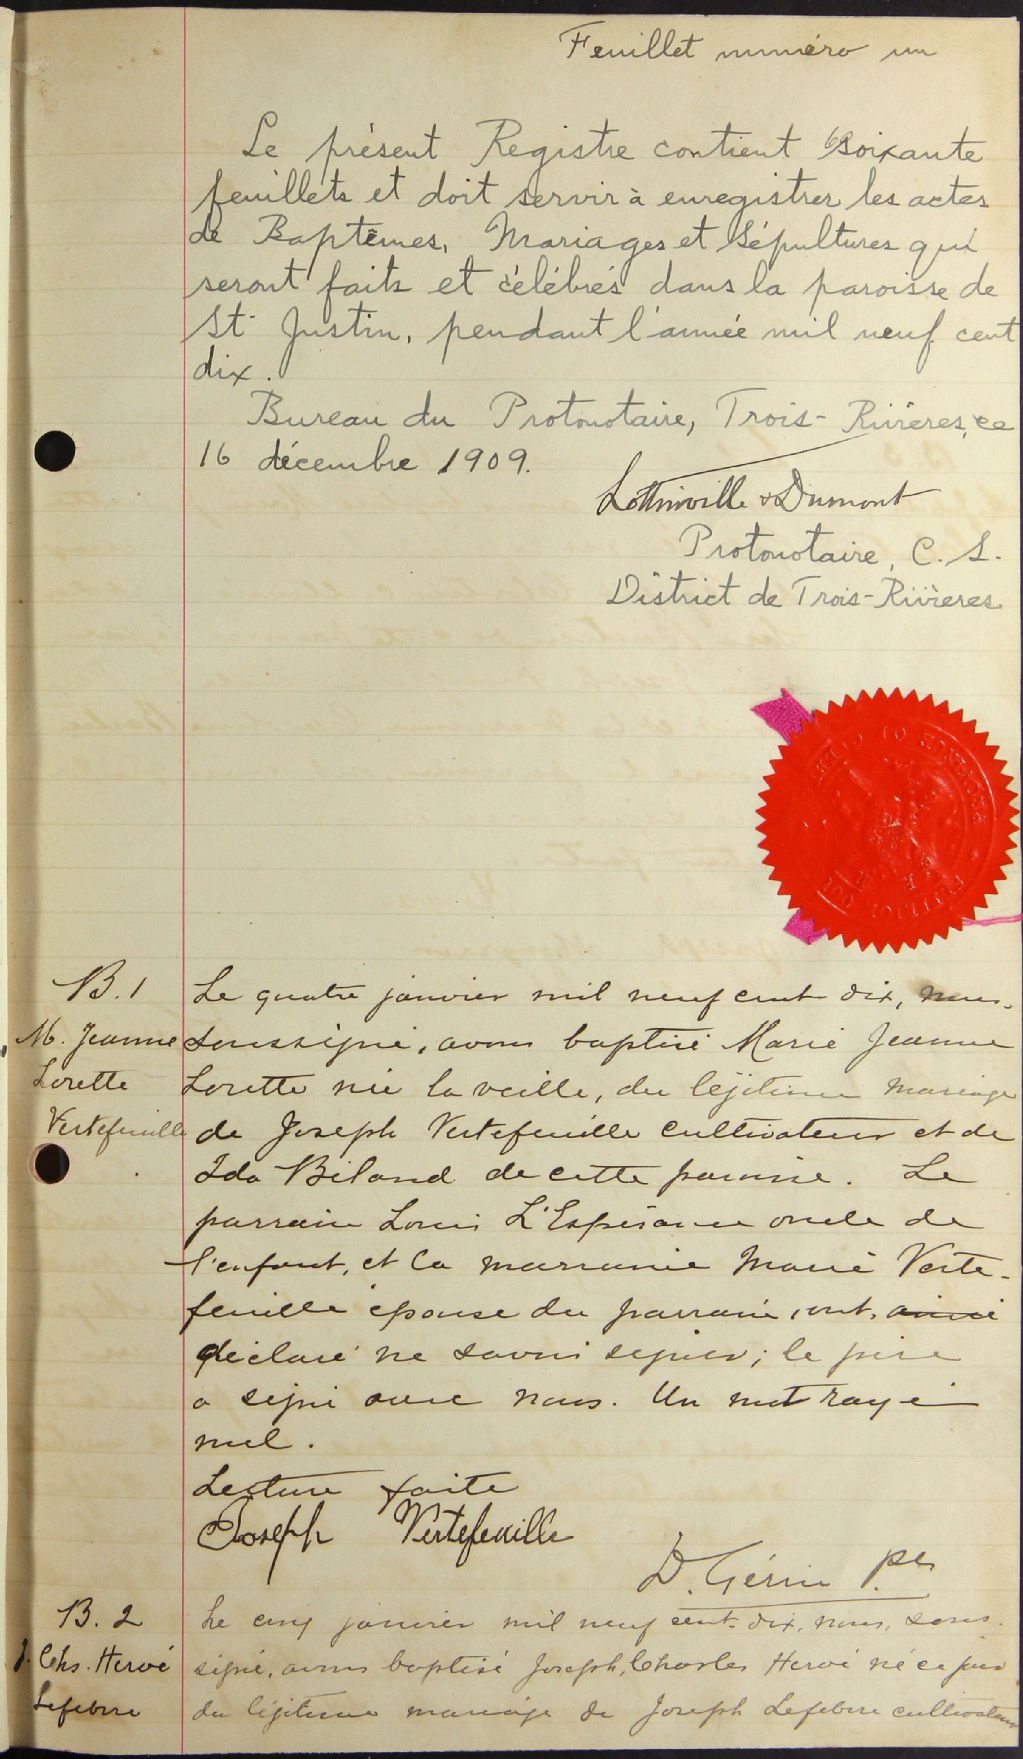 Feuillet numéro un
Le présent Registre contient soixante
feuillets et doit servir à enregistrer les actes
de Baptêmes, Mariages et Sépultures qui
seront faits et célébrés dans la paroisse de
St Justin, pendant l'année mil neuf cent
dix.
Bureau du Protonotaire, Trois-Rivières, ce
16 décembre 1909.
Lottinville & Dumont
Protonotaire, C. S.
District de Trois-Rivières
B. 1
M. Jeanne
Lorette
Vertefeuille
Le quatre janvier mil neuf cent dix, nous,
soussigné, avons baptisé Marie Jeanne
Lorette née la veille, du légitime mariage
de Joseph Vertefeuille cultivateur et de
Ida Biland de cette paroisse. Le
parrain Louis L'Espérance oncle de
l'enfant, et la marraine Marie Verte-
feuille épouse du parrain, ont, ainsi
déclaré ne savoir signer; le père
a signé avec nous. Un mot rayé
nul.
Lecture faite
Joseph Vertefeuille
D. Gérin Ptre
B. 2
J. Chs. Hervé
Lefebvre
Le cinq janvier mil neuf cent dix, nous, sous-
signé, avons baptisé Joseph, Charles Hervé né ce jour
du légitime mariage de Joseph Lefebvre cultivateur